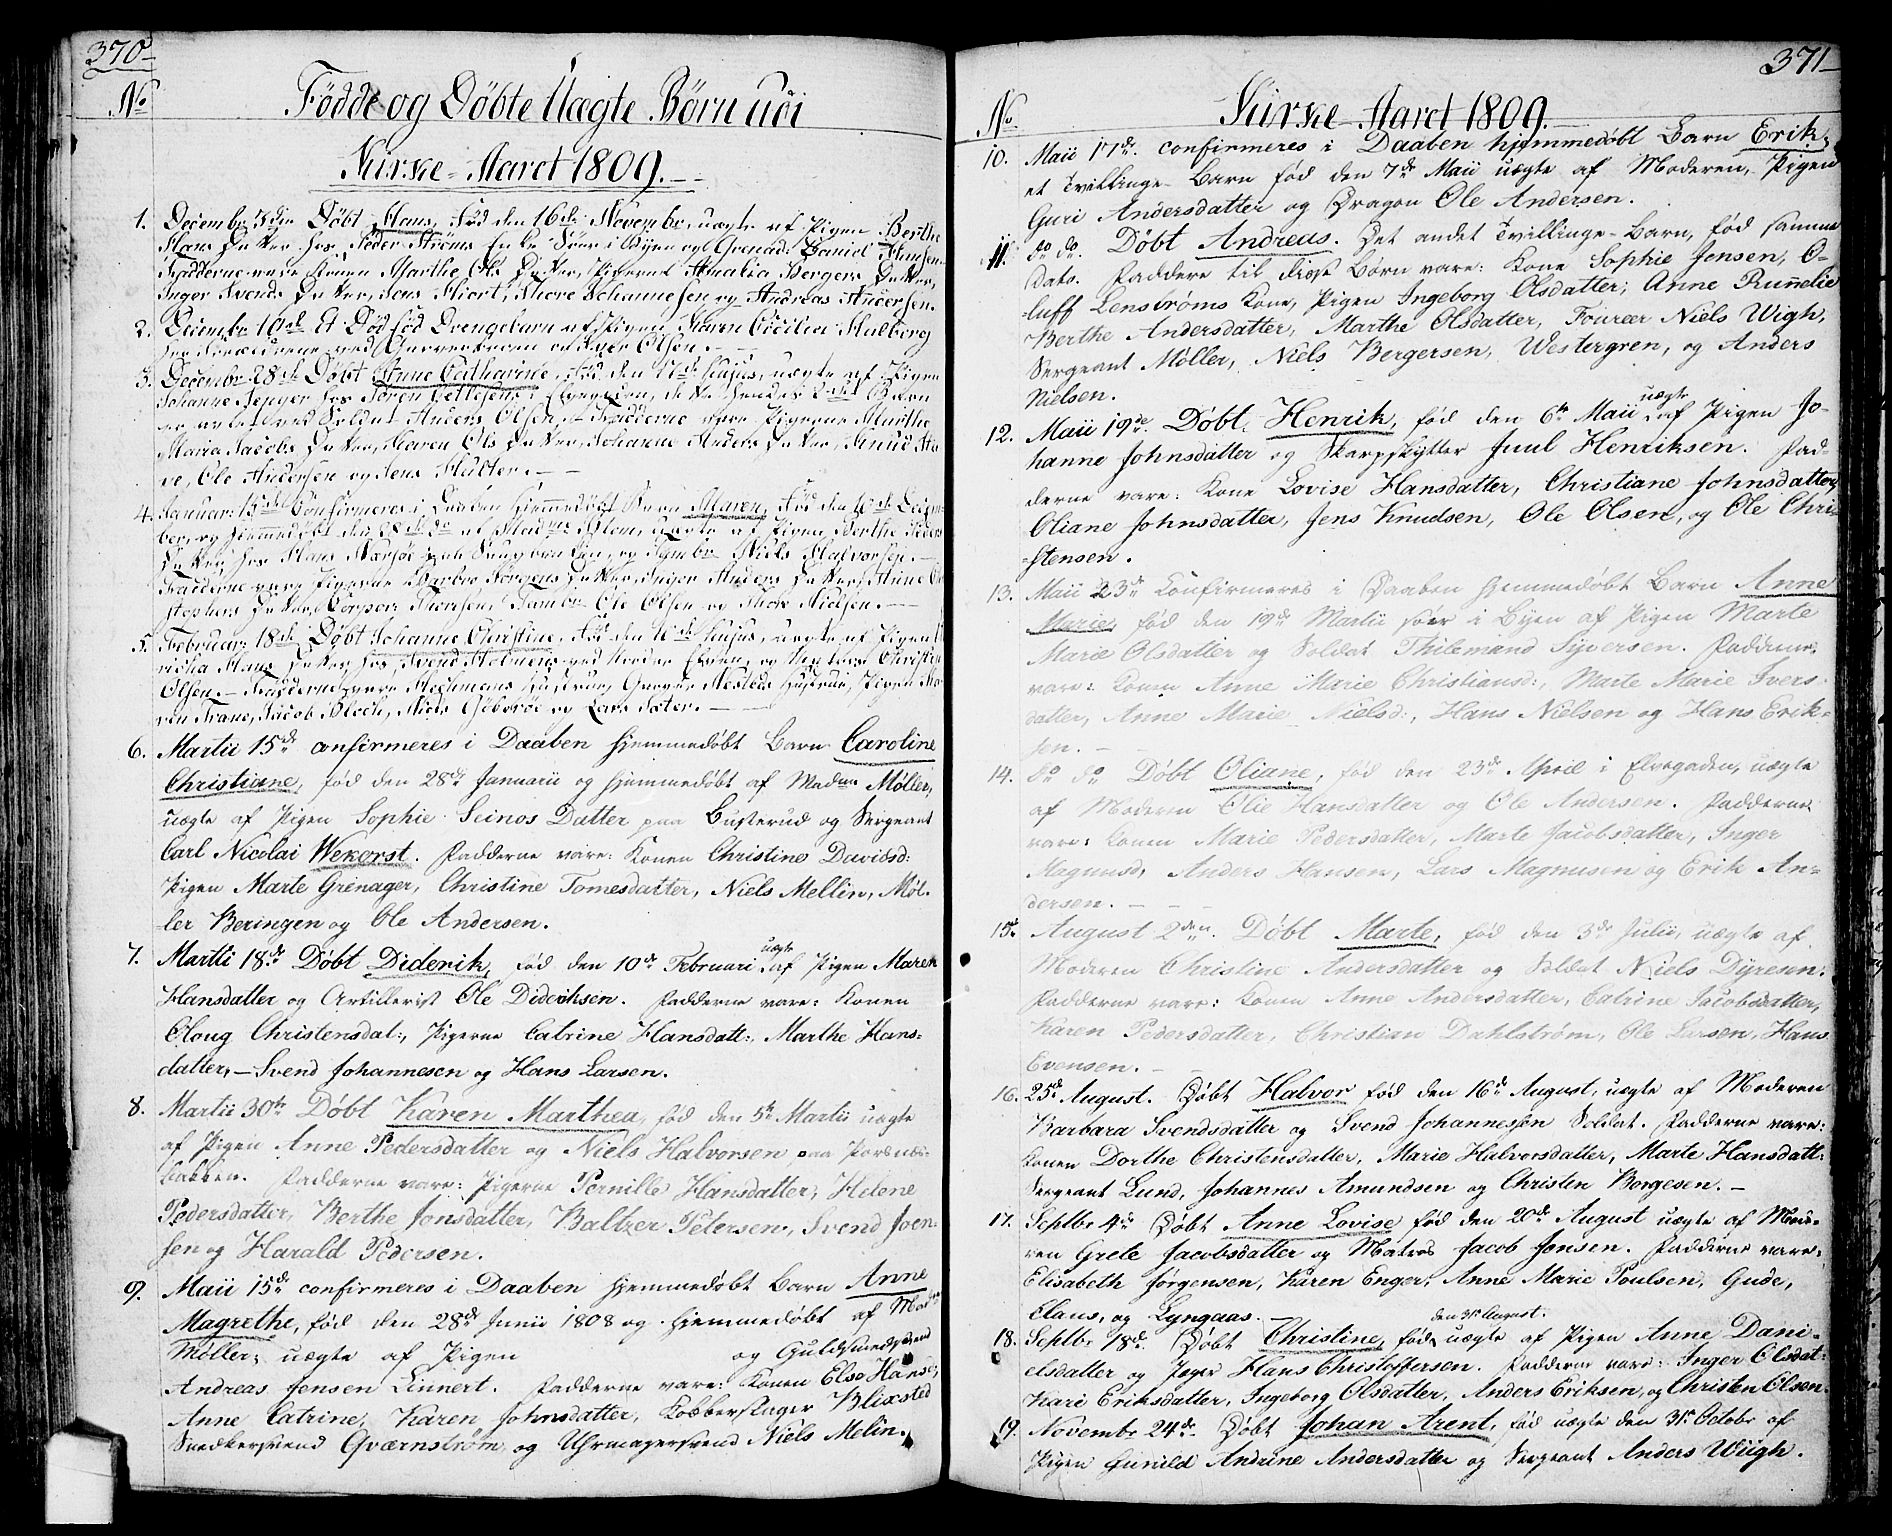 370
No
Fødde og Døbte Uægte Børn udi
Kirke-Aaret 1809.
1. Decembr 3die Døbt Hans, Fød den 16de Novembr, uægte af Pigen Berthe
Hans Datter hos Peder Ströms Enke i Byen og Grenad: Daniel Hansen
Fadderne vare Konen Marthe Ols Datter, Pigerne Amalia Bergers Datter,
Inger Svends Datter, Jens Hiort, Thore Johannesen og Andreas Andersen.
2. Decembr 10de Et Dødfød Drengebarn af Pigen Maren Cicilia
ved og Olsen.
3. Decembr 28de Døbt Anne Cathrine, Fød den 11de hujus, uægte af Pigen
Johanne hos Sören Detlefsens i Elvegaden, dette hendes 2det Barn
er avlet ved Soldat Anders Olsen, Fadderne vare Pigerne Marthe
Maria Jacobs Datter, Maren Ols Datter, Johanne Anders Datter, Knud
Ole Andersen og Jens
4. Januar: 15de Confirmeres i Daaben hjemmedøbt Barn Maren, Fød den 10de Decem-
ber, og hjemmedøbt den 28de do af Madme Blom, uægte af Pigen Berthe Peders
Datter hos Hans paa og Niels Halvorsen.
Fadderne vare Pigerne Barbro Jörgens Datter, Inger Anders Datter, Anne Chri
stophers Datter, Corporl Thoresen, Tambr Ole Olsen og Thor Nielsen.
5. Februar: 18de Døbt Johanne Christine, Fød den 10de hujus, uægte af Pigen
Hans Datter hos Svend Holmens ved Nordre Elven, og Christen
Olsen. Fadderne vare Hustrue, Hustrue, Pigen Ma-
ren Trane, Jacob Bloch, Niels og Lars Sæter.
6. Martii 15de confirmeres i Daaben hjemmedøbt Barn Caroline
Christiane, fød den 28de Januarii og hjemmedøbt af Madme Møller,
uægte af Pigen Sophie Seinos Datter paa Busterud og Sergeant
Carl Nicolai Wekorst. Fadderne vare: Konen Christine Davidsd:
Pigen Marte Grenager, Christine Tomesdatter, Niels Mellin, Møl-
ler Beringen og Ole Andersen.
7. Martii 18de Døbt Diderik, fød den 10de Februari uægte af Pigen Maren
Hansdatter og Artillerist Ole Diderichsen. Fadderne vare: Konen
Oloug Christensdat:, Pigerne Catrine Hansdatt:, Marthe Hans-
datter, – Svend Johannesen og Hans Larsen.
8. Martii 30te Døbt Karen Marthea, fød den 5te Martii uægte
af Pigen Anne Pedersdatter og Niels Halvorsen paa Porsnæs-
bakken. Fadderne vare: Pigerne Pernille Hansdatter, Helene
Pedersdatter, Berthe Jonsdatter, Baltzer Petersen, Svend Joen-
sen og Harald Pedersen.
9. Maii 15de confirmeres i Daaben hjemmedøbt Barn Anne
Magrethe, fød den 28de Junii 1808 og hjemmedøbt af Madme
Møller, uægte af Pigen og Guldsmedsvend
Andreas Jensen Linnert. Fadderne vare: Konen Else Hansd:,
Anne Catrine, Karen Johnsdatter, Kobberslager Blixsted
Snedkersvend Qværnstrøm, og Uhrmagersvend Niels Melin.
371
No
Kirke-Aaret 1809.
10. Maii 17de confirmeres i Daaben hjemmedøbt Barn Erik,
et Tvillinge-Barn fød den 7de Maii uægte af Moderen, Pigen
Guri Andersdatter og Dragon Ole Andersen.
11. do do. Døbt Andreas. Det andet Tvillinge-Barn, fød samme
Dato. Faddere til disse Børn vare: Kone Sophie Jensen, O-
luff Lenstrøms Kone, Pigen Ingeborg Olsdatter, Anne Runnelie
Berthe Andersdatter, Marthe Olsdatter, Foureer Niels Wigh,
Sergeant Møller, Niels Bergersen, Westergren, og Anders
Nielsen.
12. Maii 19de. Døbt Henrik, fød den 6te Maii uægte af Pigen Jo-
hanne Johnsdatter og Skarpskytter Juul Henriksen. Fad-
derne vare: Kone Lovise Hansdatter, Christiane Johnsdatter,
Oliane Johnsdatter, Jens Knudsen, Ole Olsen, og Ole Chri-
stensen.
13. Maii 23de Confirmeres i Daaben hjemmedøbt Barn Anne
Marie, fød den 19de Martii her i Byen af Pigen Marte
Marie Olsdatter og Soldat Thilemand Syversen. Fadderne
vare: Konen Anne Marie Christiansd:, Marte Marie Ivers-
datter, Anne Marie Nielsd:, Hans Nielsen og Hans Erik-
sen.
14. do do Døbt Oliane, fød den 23de April i Elvegaden, uægte
af Moderen Olie Hansdatter og Ole Andersen. Fadderne
vare: Konen Marie Pedersdatter, Marte Jacobsdatter, Inger
Magnusd, Anders Hansen, Lars Magnusen og Erik An-
dersen.
15. August 2den. Døbt Marte, fød den 3de Julii, uægte af
Moderen Christine Andersdatter og Soldat Niels Dyresen.
Fadderne vare: Konen Anne Andersdatter, Catrine Jacobsdatter,
Karen Pedersdatter, Christian Dahlstrøm, Ole Larsen, Hans
Evensen.
16. 25de August. Døbt Halvor fød den 16de August, uægte af Moderen
Barbara Svendsdatter og Svend Johannessen Soldat. Fadderne vare:
Konen Dorthe Christensdatter, Marie Halvorsdatter, Marte Hansdatt:
Sergeant Lund, Johannes Amundsen og Christen Borgesen.
17. Septbr 4de Døbt Anne Lovise fød den 20de August uægte af Mode-
ren Grete Jacobsdatter og Matros Jacob Jensen. Fadderne vare:
Elisabeth Jørgensen, Karen Enger, Anne Marie Poulsen, Gude,
Claus, og Lyngaas.
18. Septbr 18de. Døbt Christine, fød den 31te August. uægte af Pigen Anne Dani-
elsdatter og Jæger Hans Christoffersen. Fadderne vare: Inger Olsdat-
Kari Eriksdatter, Ingeborg Olsdatter, Anders Eriksen, og Christen Olsen.
19. Novembr 24de. Døbt Johan Arent, fød uægte den 31te Octobr af
Pigen Gunild Andrine Andersdatter og Sergeant Anders Wiigh.